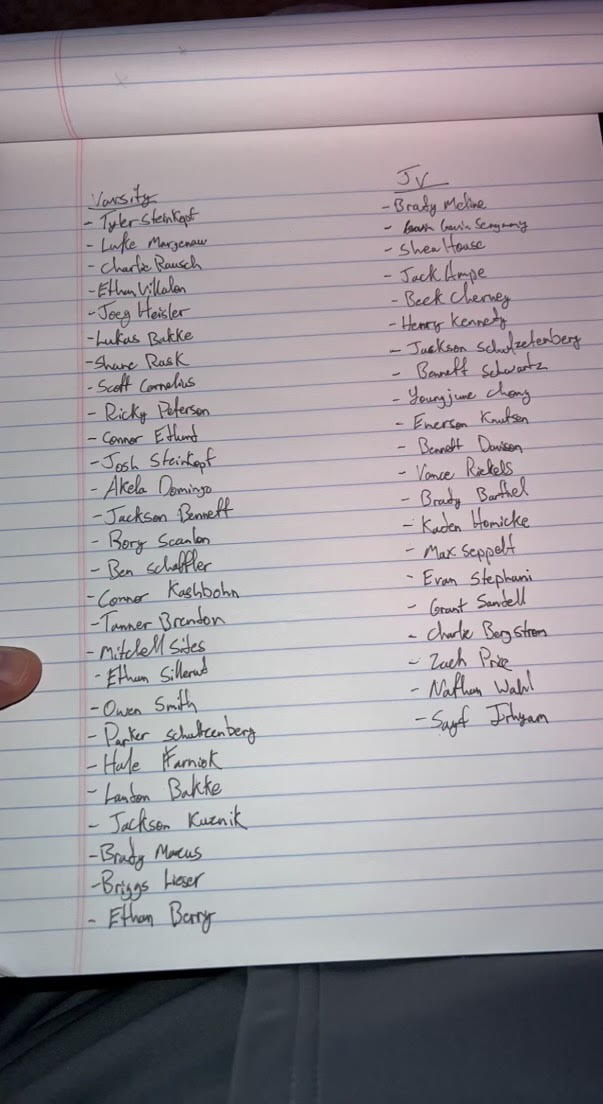 Varsity
- Tyler Steinkopf
- Luke Margenau
- Charlie Rausch
- Ethan Villalon
- Joey Heisler
- Lukas Bakke
- Shane Rask
- Scott Cornelius
- Ricky Peterson
- Connor
- Josh Steinkopf
- Akela Domingo
- Jackson Bennett
- Rory Scanlon
- Ben Schaffler
- Connor Kashbohn
- Tanner Brendon
- Mitchell Sides
- Ethan Sillerud
- Owen Smith
- Parker Schultzenberg
- Hale Harniok
- Landon Bakke
- Jackson Kuznik
- Brady Marcus
- Briggs Lieser
- Ethan Berry
JV
- Brady Meline
- Gavin
- Shea House
- Jack Ampe
- Beck Cherney
- Henry Kennedy
- Jackson Schulzetenberg
- Bennett Schwartz
- Youngjune Chong
- Emerson Knutsen
- Bennett Davison
- Vance Rickels
- Brady Barthel
- Kaden Homicke
- Max Seppelt
- Evan Stephani
- Grant Sandell
- Charlie Bergstrom
- Zach Price
- Nathan Wahl
- Sayf